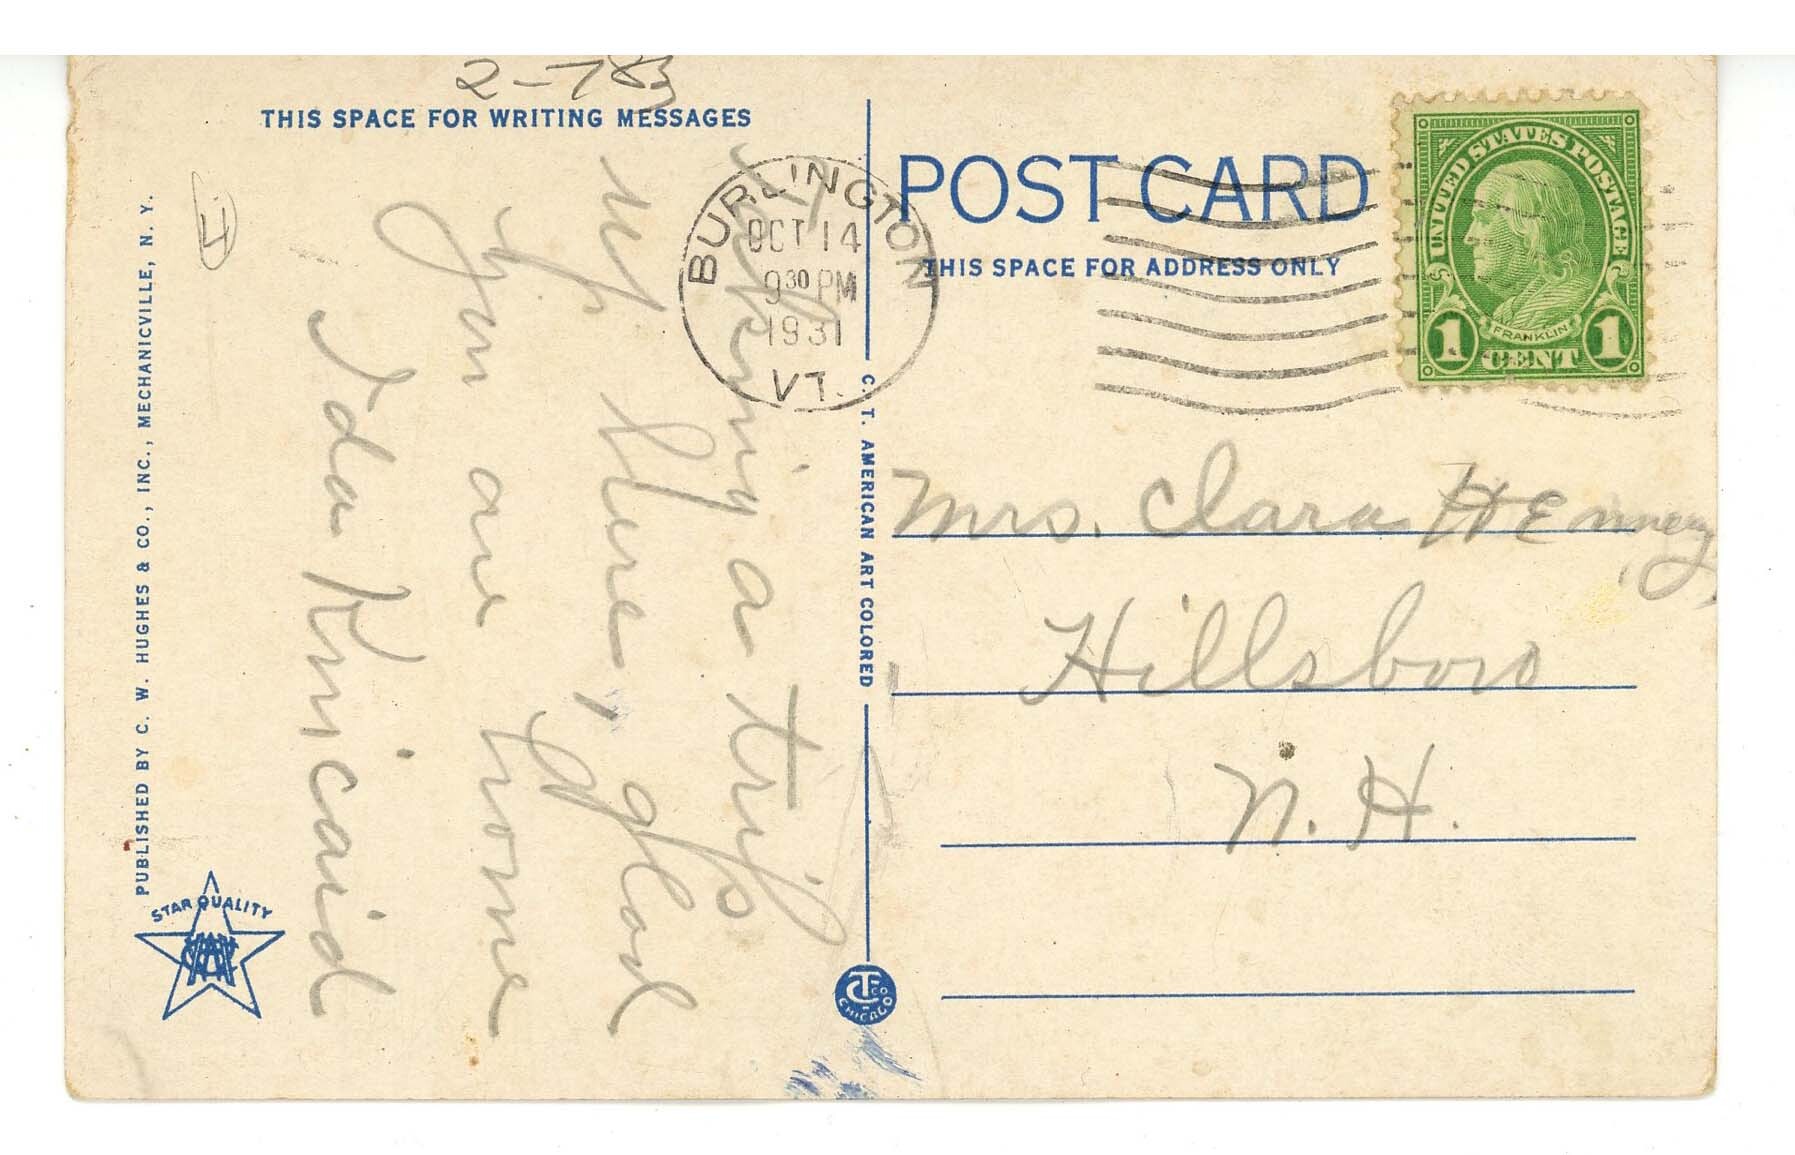 2-783
THIS SPACE FOR WRITING MESSAGES
a trip
up here, glad
you are home
Ida Kincaid
PUBLISHED BY C. W. HUGHES & CO., INC., MECHANICVILLE, N. Y.
STAR QUALITY
C. T. AMERICAN ART COLORED
C T CO
CHICAGO
BURLINGTON
OCT 14
9 30 PM
1931
VT.
POST CARD
THIS SPACE FOR ADDRESS ONLY
UNITED STATES POSTAGE
FRANKLIN
1 CENT 1
Mrs. Clara
Hillsboro
N. H.